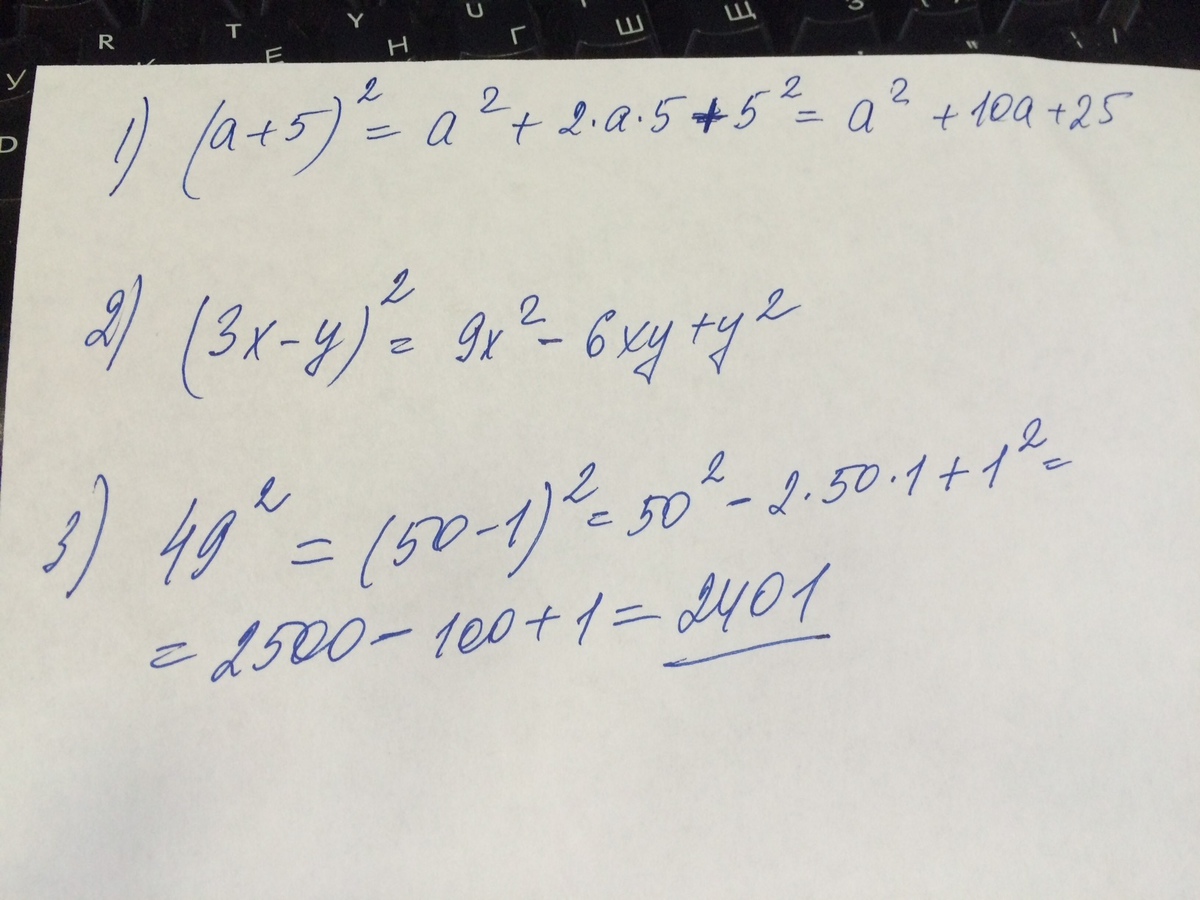 R T Y U
У К Е Н Г Ш Щ З
D
1) (a+5)² = a² + 2·a·5 + 5² = a² + 10a + 25
2) (3x-y)² = 9x² - 6xy + y²
3) 49² = (50-1)² = 50² - 2·50·1 + 1² =
= 2500 - 100 + 1 = 2401